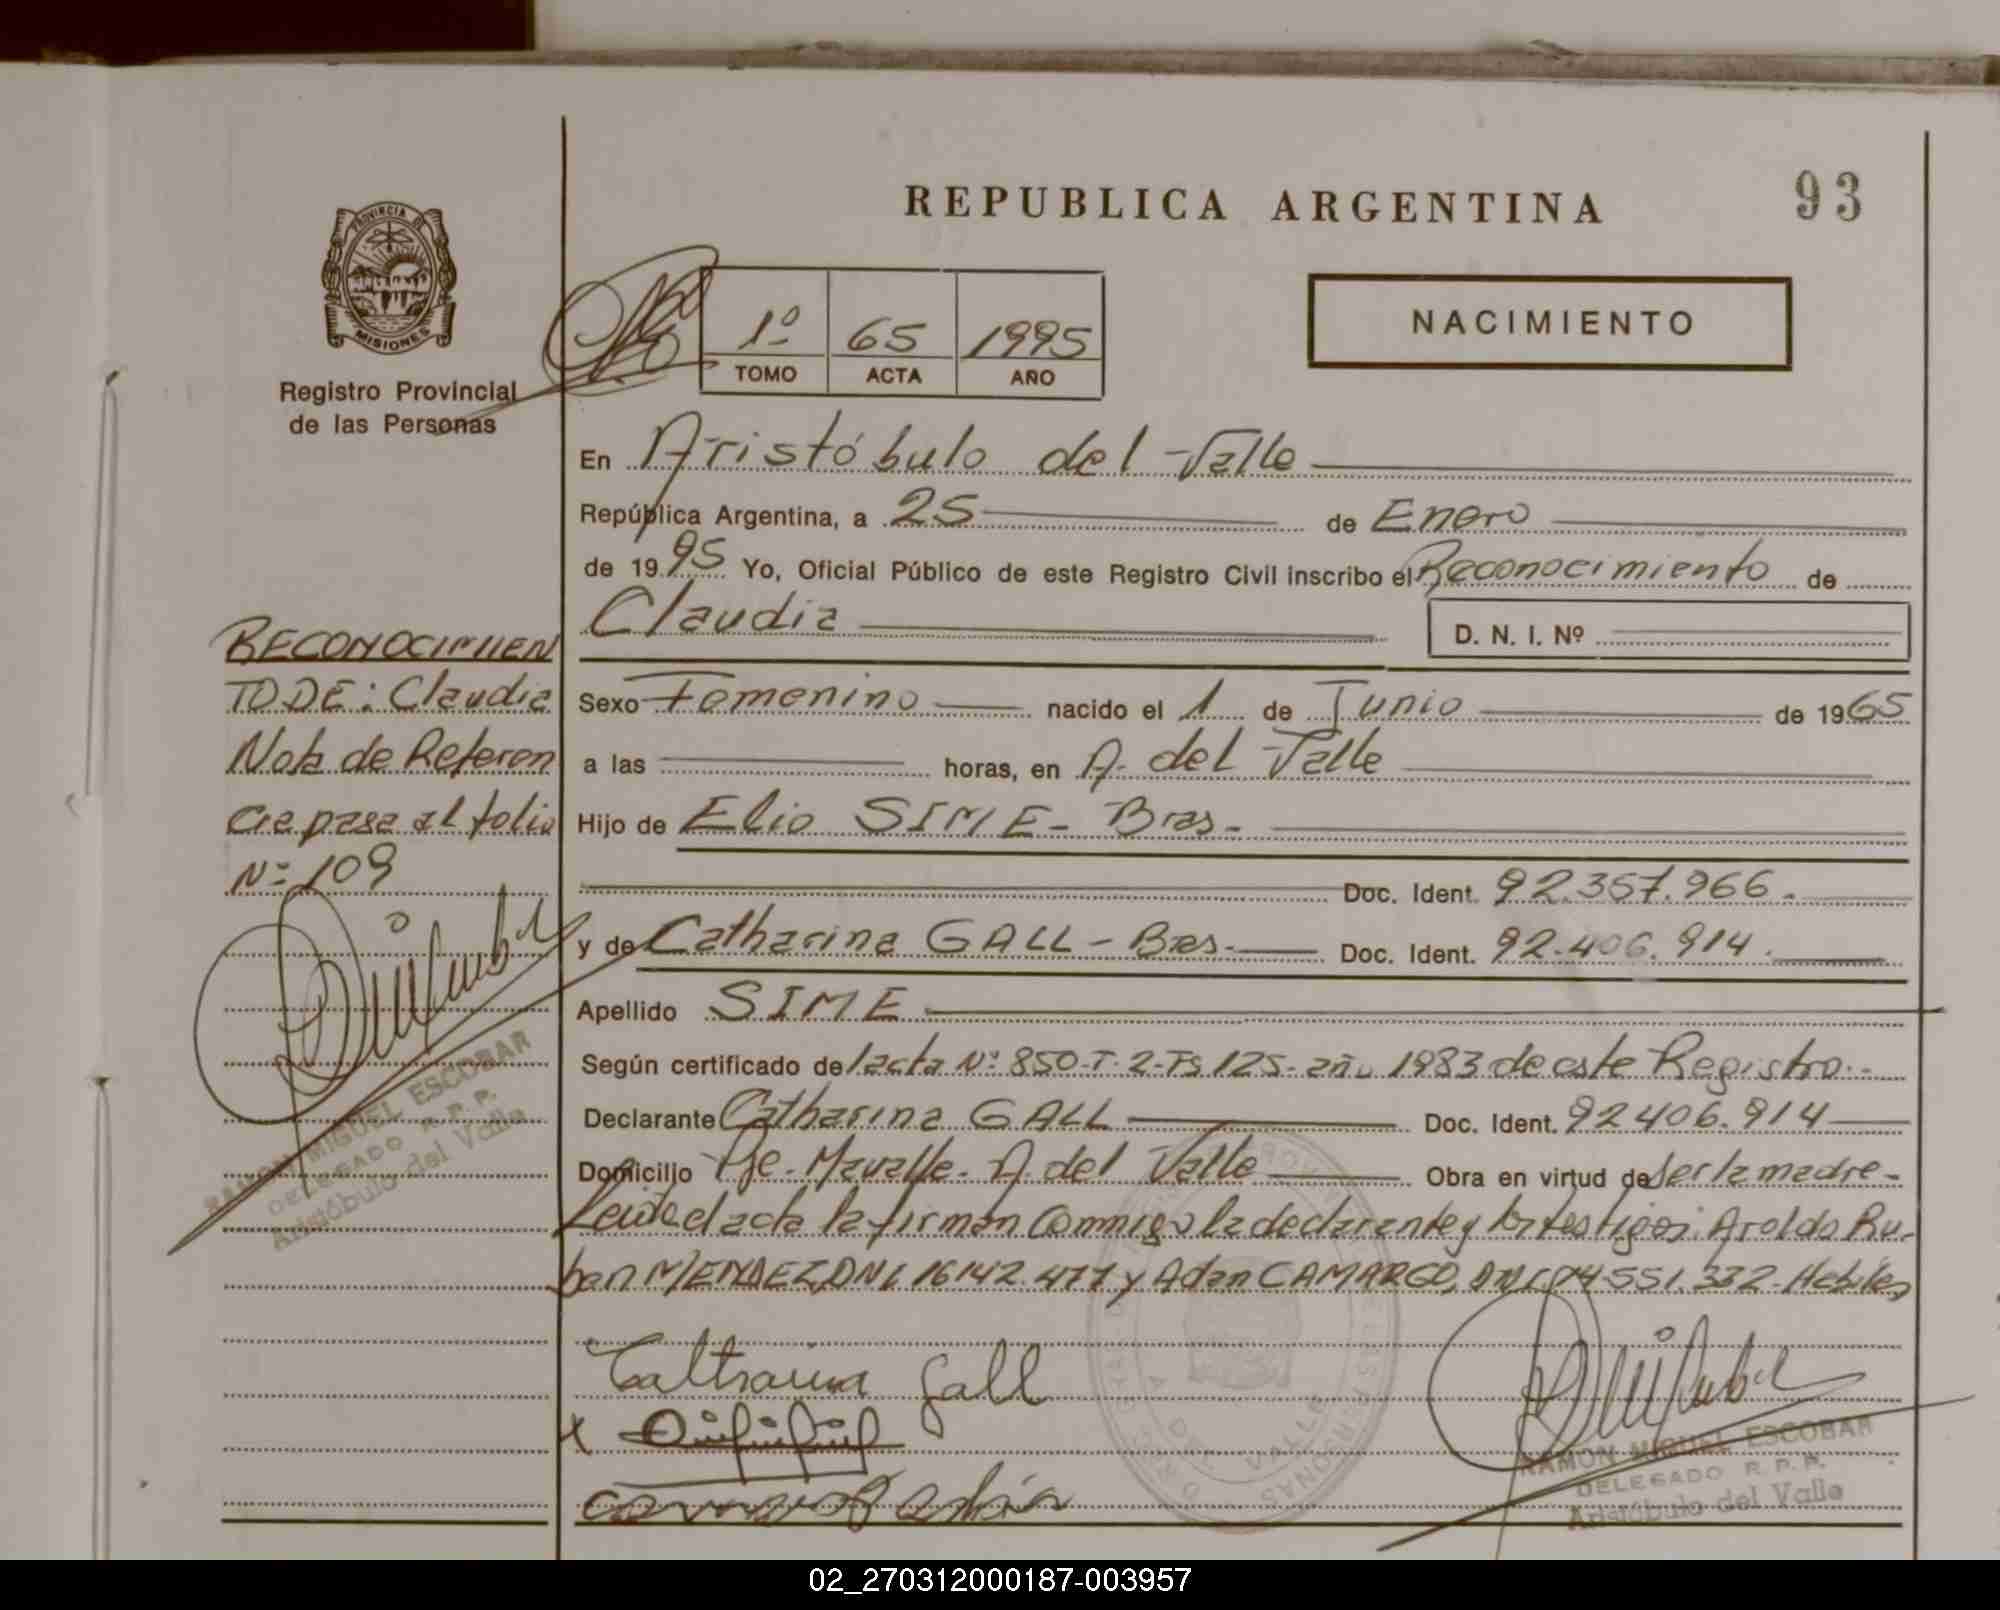 REPUBLICA ARGENTINA
93
PROVINCIA DE
MISIONES
Registro Provincial
de las Personas
1º 65 1995
TOMO ACTA AÑO
NACIMIENTO
En Aristóbulo del Valle
República Argentina, a 25 de Enero
de 1995 Yo, Oficial Público de este Registro Civil inscribo el Reconocimiento de
Claudia
D. N. I. Nº
RECONOCIMIEN
TO DE: Claudia
Nota de Referen
cia pasa al folio
Nº 109
Sexo Femenino nacido el 1 de Junio de 1965
a las horas, en A. del Valle
Hijo de Elio SIME - Bras.-
Doc. Ident. 92.357.966.
y de Catharina GALL - Bras.- Doc. Ident. 92.406.914.
Apellido SIME
Según certificado del acta Nº 850-T-2-Fs 125- año 1983 de este Registro.-
Declarante Catharina GALL Doc. Ident. 92406.914
Domicilio Pje. Mavalle- A. del Valle Obra en virtud de ser la madre-
Leida el acta la firman conmigo la declarante y los testigos: Aroldo Ru-
ben MENDEZ, DNI 16142.477 y Adan CAMARGO, DNI 14.551.332- Habiles
Caltraina Gall
RAMON MIGUEL ESCOBAR
DELEGADO R.P.P.
Aristóbulo del Valle
RAMON MIGUEL ESCOBAR
DELEGADO R.P.P.
Aristóbulo del Valle
02_270312000187-003957